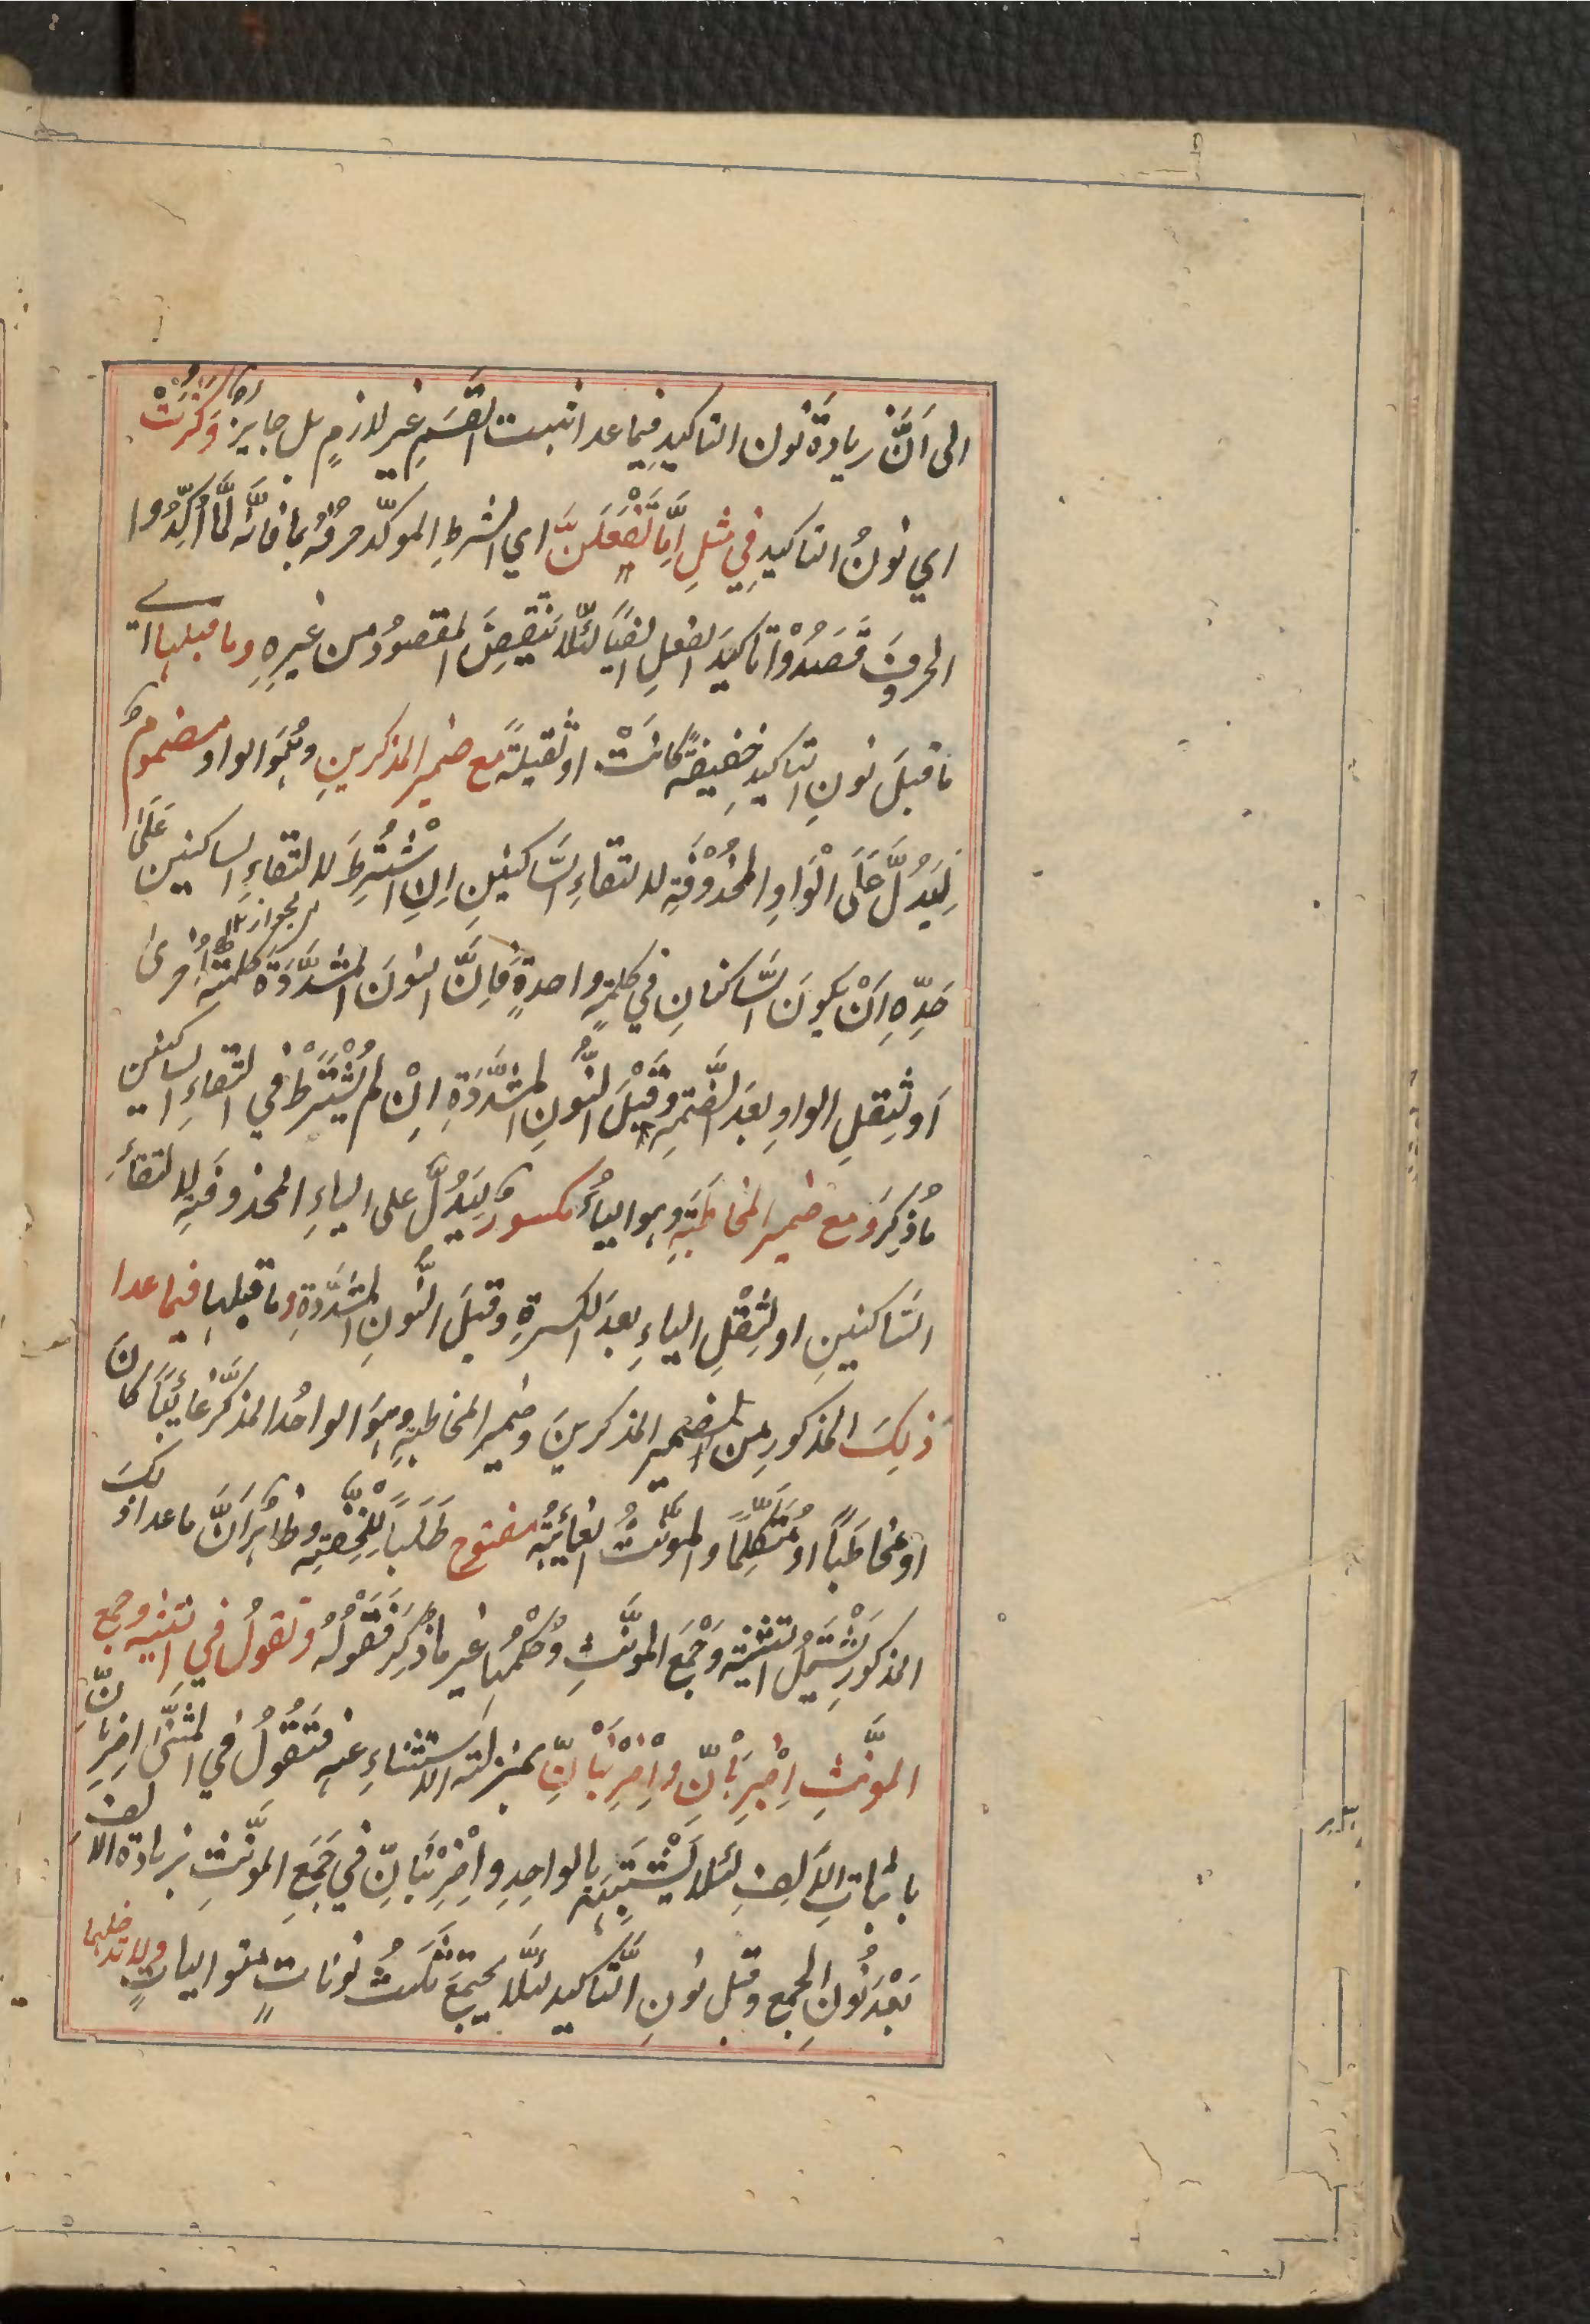 الى اَنَّ زيادةَ نون التاكيد فيما عدا مثبت القَسَمِ غير لازمٍ بل جايز وكَثُرَتْ
اي نونُ التاكيدِ في مثلِ اِمَّا تَفْعَلَنَّ اي الشرطِ الموكّد حرفُه بما فانّه لمّا اكّدوا
الحروفَ قَصَدُوْا تاكيدَ الفعلِ ايضًا لئلّا يَنْتَقِصَ المقصودُ من غيرِهِ وما قبلها اي
ما قبلَ نونِ التاكيدِ خفيفةً كانَتْ او ثقيلةً مع ضميرِ المذكرينِ وهُوَ الواو مضمومٌ
لِيَدُلَّ عَلَى الْوَاوِ المَحْذُوْفَةِ لالتقاءِ السَّاكنينِ اِنِ اشْتُرِطَ لالتقاءِ الساكنين عَلَى
حَدِّهِ اَنْ يكونَ السَّاكنانِ في كلمةٍ واحدةٍ فَاِنَّ النونَ المشدَّدَةَ كلمة اُخرىٰ
اَو لثِقلِ الواوِ بعدَ الضَّمّةِ وَقَبْلَ النُّونِ المشدَّدَةِ اِنْ لم يُشْتَرَطْ في التقاءِ الساكنين
ماذُكِرَ وَمع ضميرِ المخاطَبَةِ وهو الياءُ مكسورٌ لِيَدُلَّ على الياءِ المحذوفَةِ لالتقاءِ
السَّاكنينِ او لثِقْلِ الياءِ بعدَ الكسرةِ وقبلَ النُّونِ المشدَّدةِ وما قبلها فيما عدا
ذلِكَ المذكورِ من الضمير المذكرينَ وضمير المخاطبةِ وهُوَ الواحدُ المذكَّرُ غائبًا كانَ
او مخاطَبًا او مُتكلِّمًا والمونّثُ الغائبةُ مفتوح طَلَبًا لِلْخِفَّةِ وظاهرٌ اَنَّ ماعدا ذلكَ
المذكور يَشْتَمِلُ التثنيةَ وَجَمْعَ المونَّثِ وحُكْمُها غير ماذُكِرَ فَقَوْلُهُ وتقولُ في التثنيه وجمع
المونَّثِ اِضْرِبَانِّ واضْرِبْنَانِّ بمنزلة الاستثناءِ عنه فتَقُولُ في المثنّى اضربانِّ
باثباتِ الاَلِفِ لئلّا يَشْتَبِهَ بالواحدِ واضْرِبْنَانِّ في جَمعِ المونَّثِ بزيادة الالف
بَعْدَ نُونِ الجمع وقبل نونِ التَّاكيد لئلَّا يجتمعَ ثلٰثُ نوناتٍ متوالياتٍ ولا تدخلهما